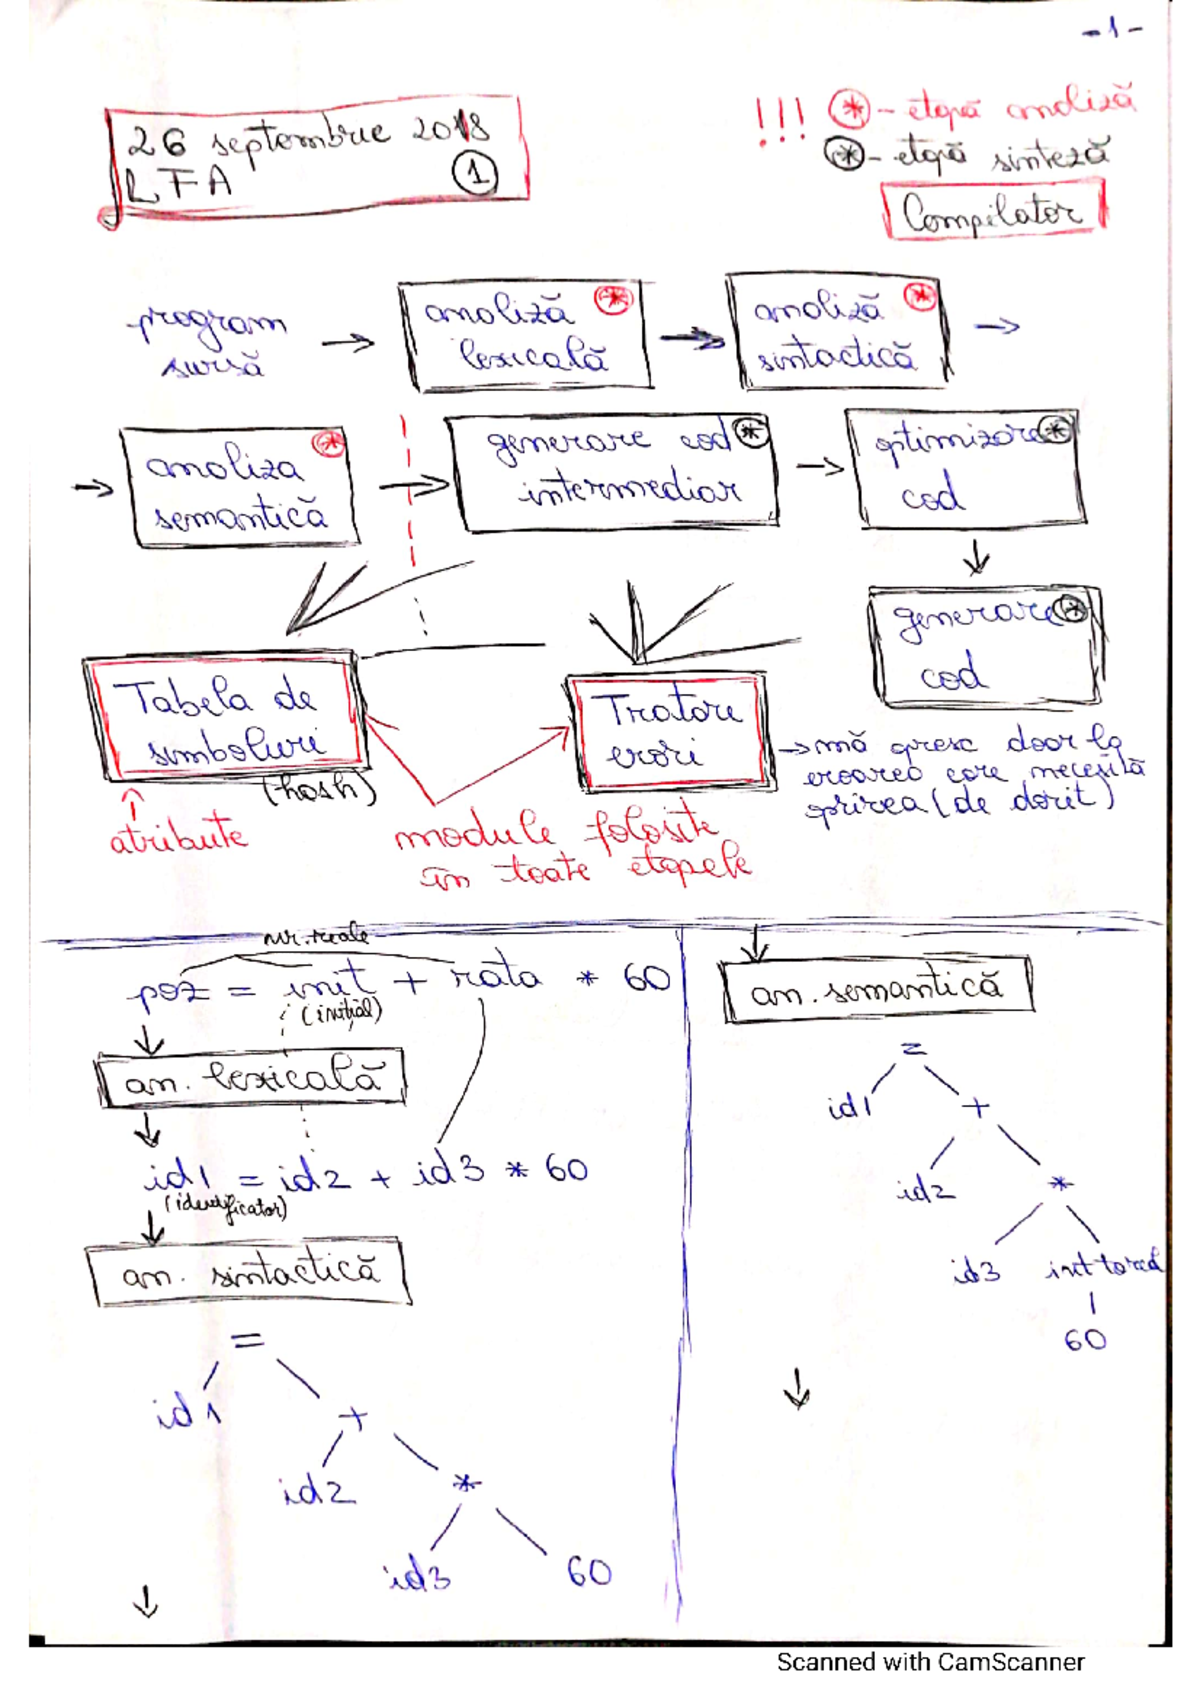 -1-
26 septembrie 2018
LFA ①
!!! ⊛ - etapă analiză
⊛ - etapă sinteză
Compilator
program
sursă
→ analiză
lexicală ⊛
→ analiză
sintactică ⊛ →
→ analiza
semantică ⊛
→ generare cod
intermediar ⊛
→ optimizare
cod ⊛
↓
generare
cod ⊛
Tabela de
simboluri
(hash)
↑
atribute
Tratare
erori
→ mă opresc doar la
eroarea care necesită
oprirea (de dorit)
module folosite
în toate etapele
nr. reale
poz = init + rata * 60
(inițial)
↓
an. lexicală
↓
id1 = id2 + id3 * 60
(identificator)
↓
an. sintactică
=
id1 +
id2 *
id3 60
↓
↓
an. semantică
=
id1 +
id2 *
id3 inttoreal
60
↓
Scanned with CamScanner